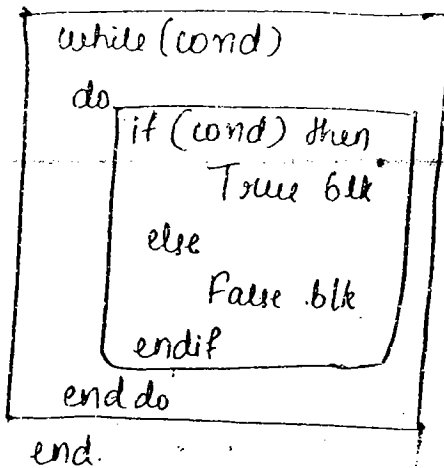 while (cond)
do
if (cond) then
True blk
else
False blk
endif
end do
end.